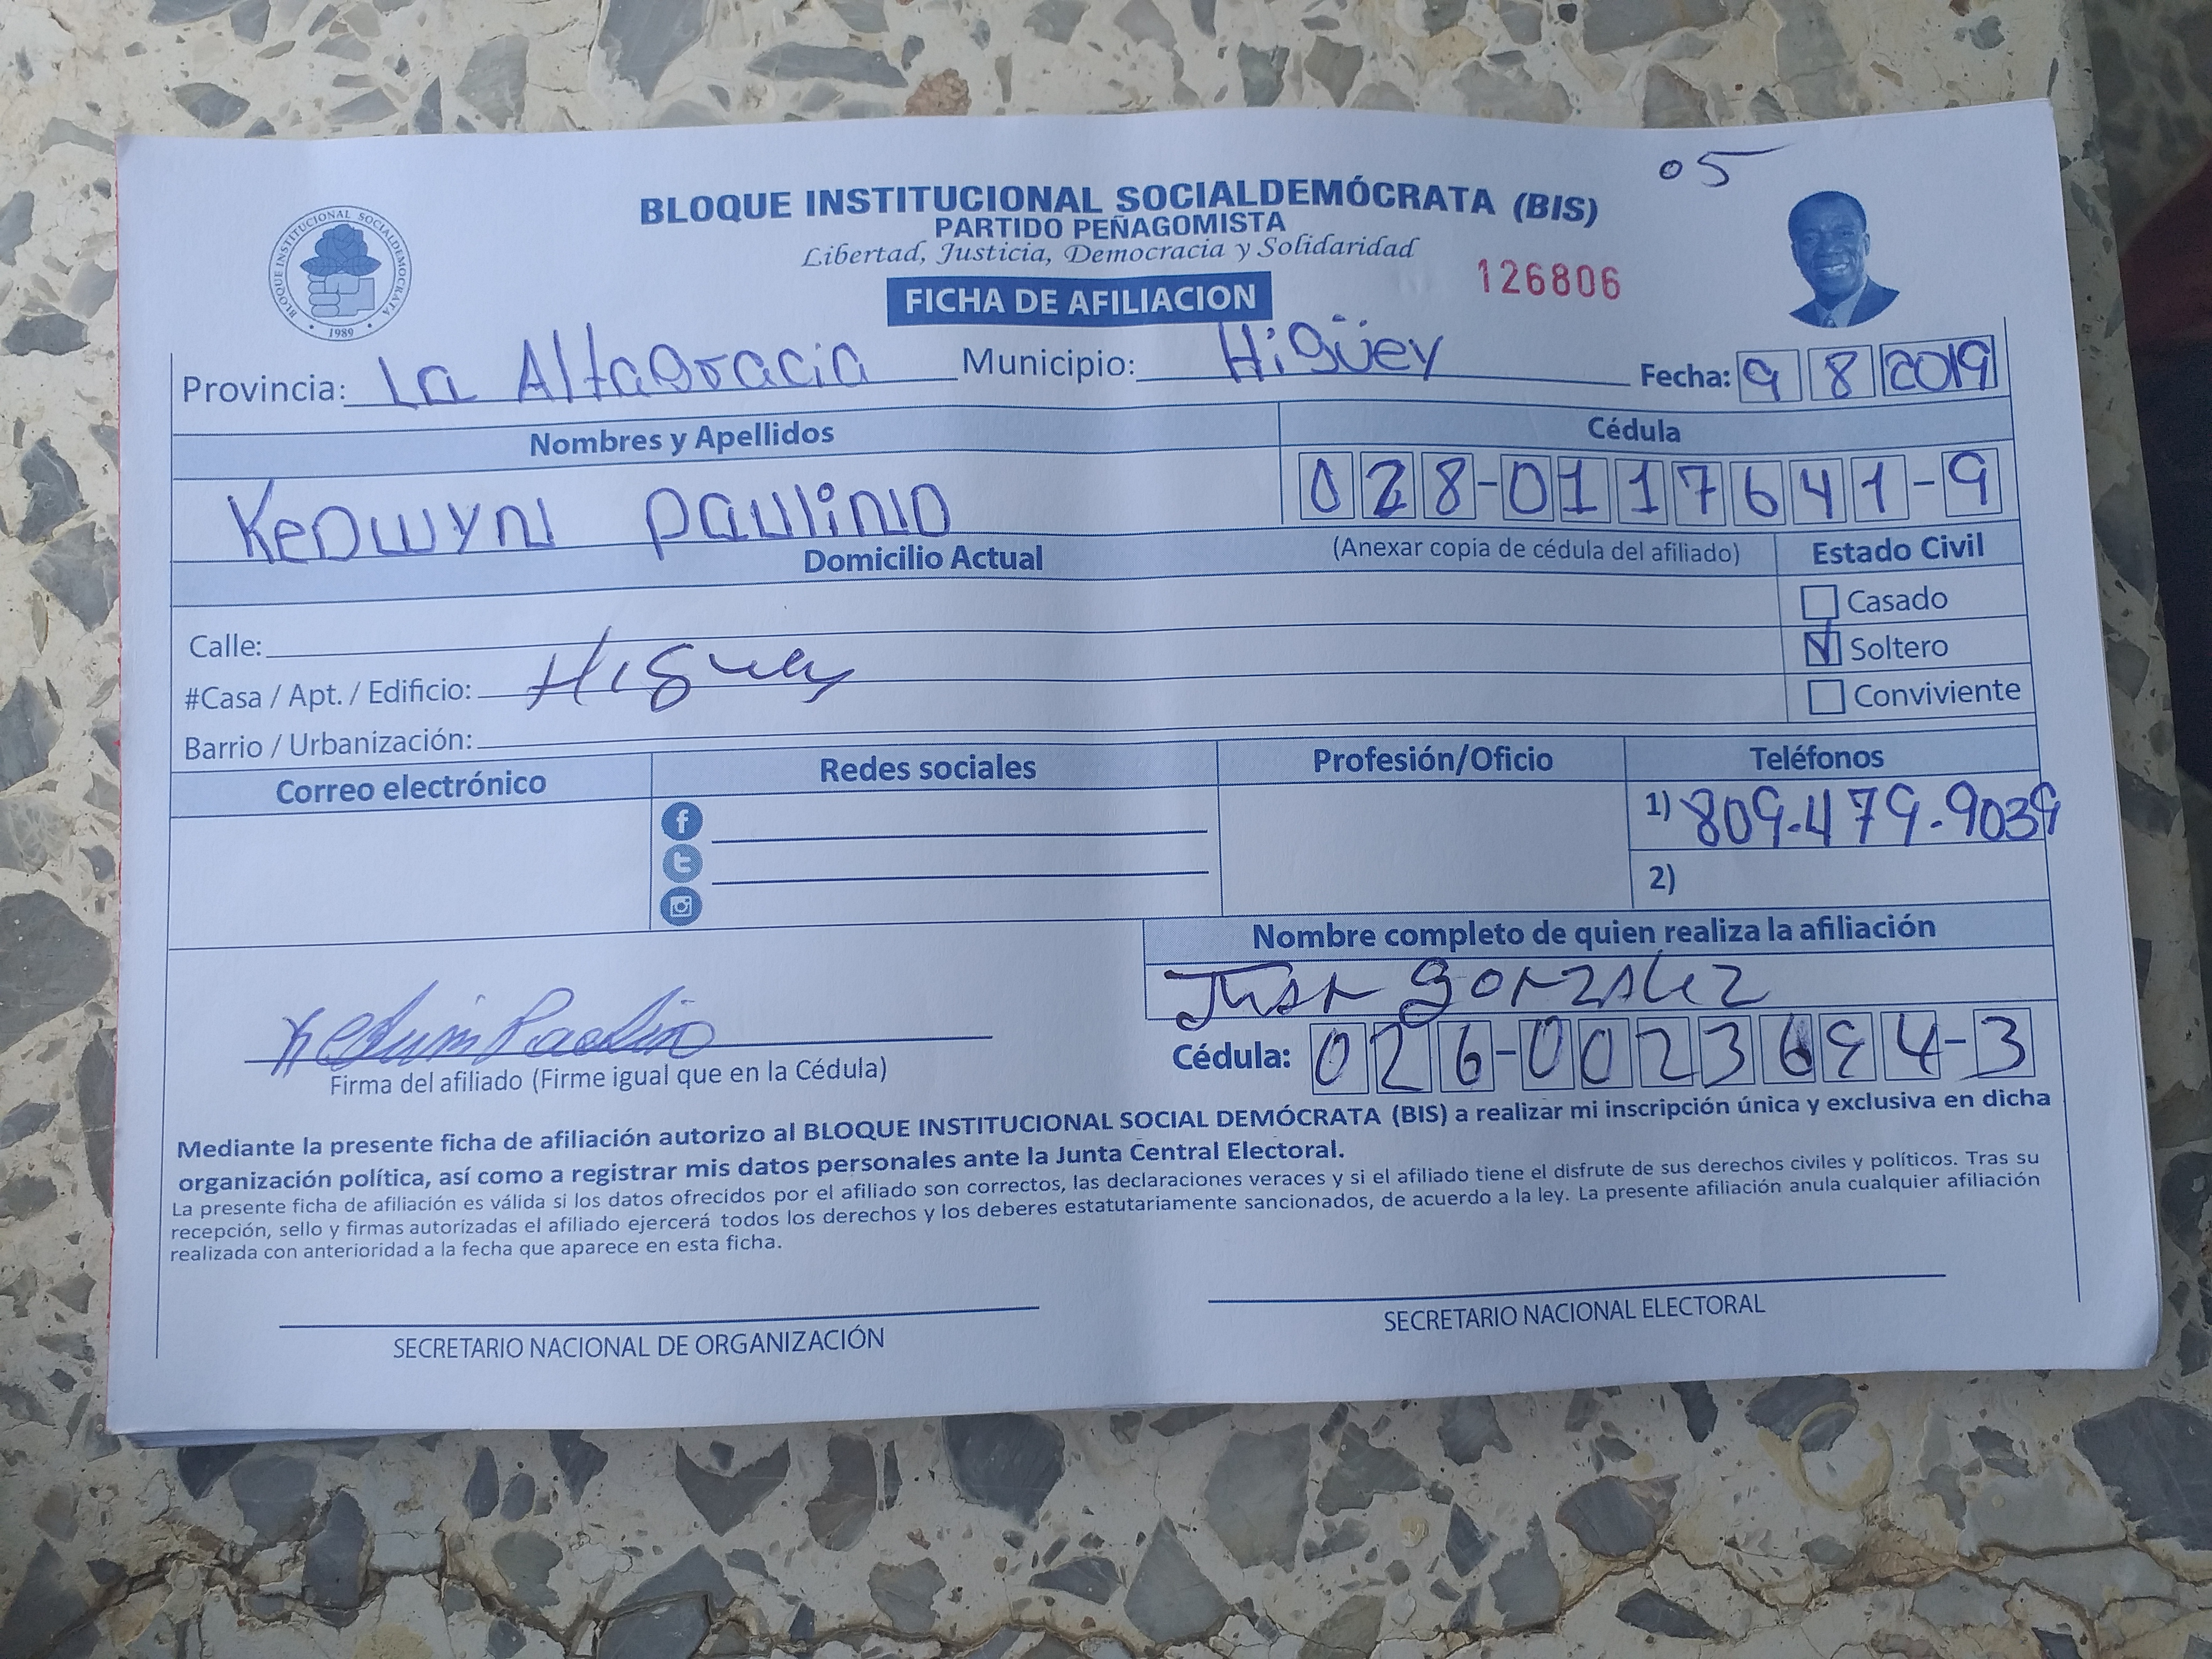 05
BLOQUE INSTITUCIONAL SOCIALDEMÓCRATA (BIS)
PARTIDO PEÑAGOMISTA
Libertad, Justicia, Democracia y Solidaridad
126806
FICHA DE AFILIACION
BLOQUE INSTITUCIONAL SOCIALDEMOCRATA
1989
Provincia: La Altagracia Municipio: Higüey Fecha: 9 8 2019
Nombres y Apellidos Cédula
Kedwyn Paulino 028-0117641-9
Domicilio Actual (Anexar copia de cédula del afiliado) Estado Civil
Casado
Calle:
Soltero
#Casa / Apt. / Edificio: Higuey
Conviviente
Barrio / Urbanización:
Correo electrónico Redes sociales Profesión/Oficio Teléfonos
1) 809-479-9039
2)
Nombre completo de quien realiza la afiliación
Gonzalez
Kedwin Paulino
Cédula: 026-0023694-3
Firma del afiliado (Firme igual que en la Cédula)
Mediante la presente ficha de afiliación autorizo al BLOQUE INSTITUCIONAL SOCIAL DEMÓCRATA (BIS) a realizar mi inscripción única y exclusiva en dicha
organización política, así como a registrar mis datos personales ante la Junta Central Electoral.
La presente ficha de afiliación es válida si los datos ofrecidos por el afiliado son correctos, las declaraciones veraces y si el afiliado tiene el disfrute de sus derechos civiles y políticos. Tras su
recepción, sello y firmas autorizadas el afiliado ejercerá todos los derechos y los deberes estatutariamente sancionados, de acuerdo a la ley. La presente afiliación anula cualquier afiliación
realizada con anterioridad a la fecha que aparece en esta ficha.
SECRETARIO NACIONAL DE ORGANIZACIÓN SECRETARIO NACIONAL ELECTORAL